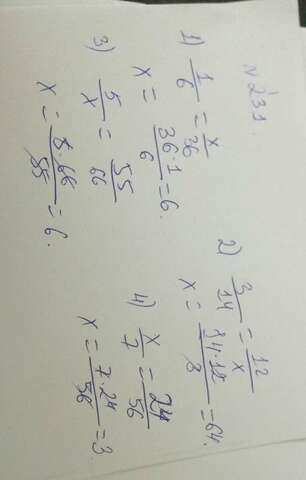 N 231.
1) 1/6 = x/36
x = 36·1/6 = 6.
2) 3/14 = 12/x
x = 14·12/3 = 64.
3) 5/x = 55/66
x = 5·66/55 = 6.
4) x/7 = 24/56
x = 7·24/56 = 3